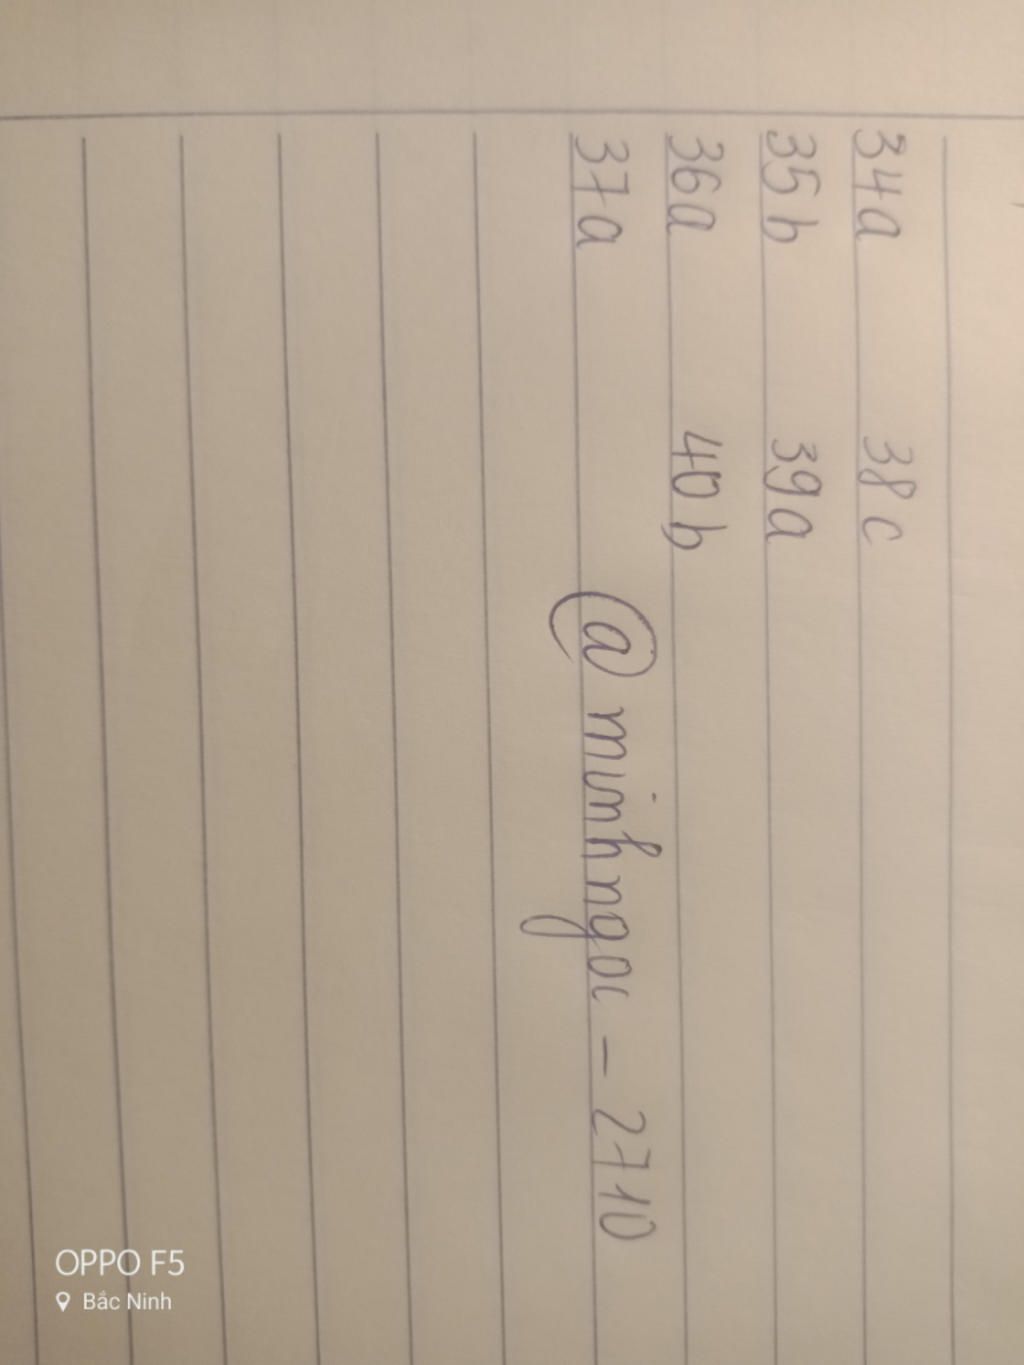 34a 38c
35b 39a
36a 40b
37a
@minhngoc-2710
OPPO F5
Bắc Ninh